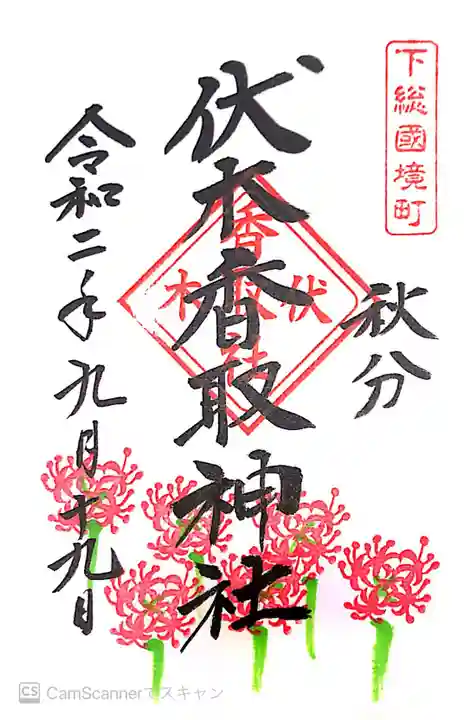 下総國境町
秋分
伏木香取神社
伏木
香取
令和二年九月十九日
CS CamScannerでスキャン